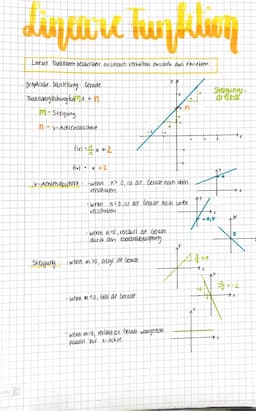 Lineare Funktion
Lineare Funktionen beschreiben
graphische Darstellung: Gerade
Steigungs-
dreieck
Funktionsgleichung: m x + n
m - Steigung
n - y-Achsenabschnitt
n
f(x) = x + 2
f(x) = x + 2
y-Achsenabschnitt: - wenn n>0, ist die Gerade nach oben
verschoben
- wenn n<0, ist die Gerade nach unten
verschoben
- wenn n=0, verläuft die Gerade
durch den Koordinatenursprung
Steigung: - wenn m>0, steigt die Gerade
- wenn m<0, fällt die Gerade
- wenn m=0, verläuft die Gerade waagerecht
parallel zur x-Achse